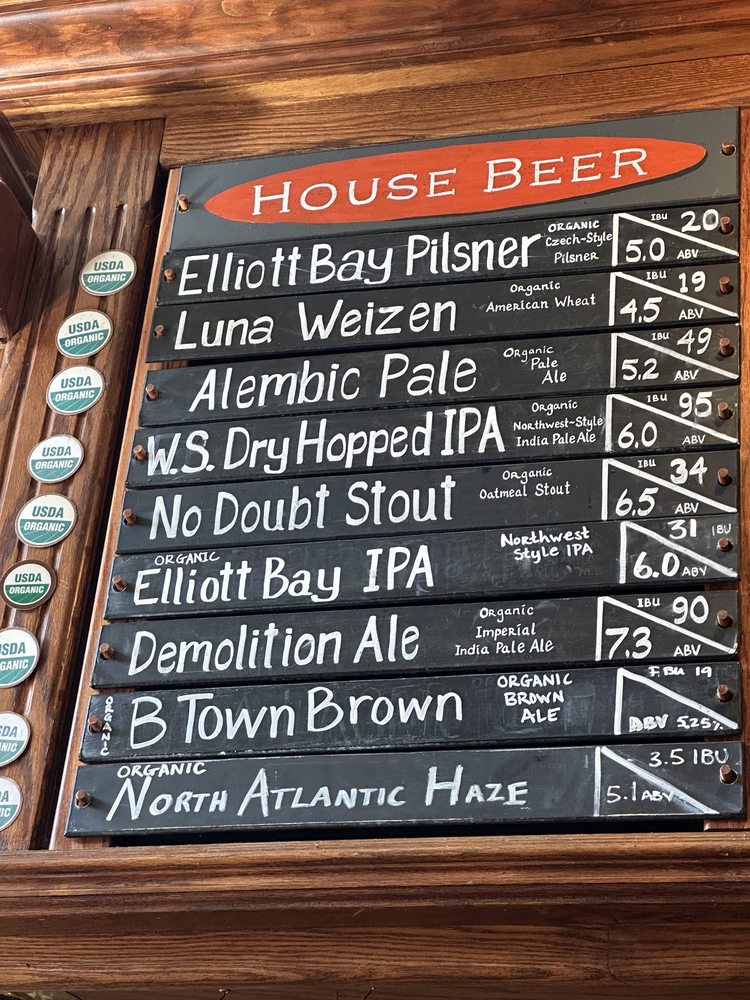 HOUSE BEER
USDA ORGANIC
Elliott Bay Pilsner
ORGANIC
Czech-Style
Pilsner
IBU 20
5.0 ABV
USDA ORGANIC
Luna Weizen
Organic
American Wheat
IBU 19
4.5 ABV
USDA ORGANIC
Alembic Pale
Organic
Pale
Ale
IBU 49
5.2 ABV
USDA ORGANIC
W.S. Dry Hopped IPA
Organic
Northwest-Style
India Pale Ale
IBU 95
6.0 ABV
USDA ORGANIC
No Doubt Stout
Organic
Oatmeal Stout
IBU 34
6.5 ABV
USDA ORGANIC
ORGANIC
Elliott Bay IPA
Northwest
Style IPA
31 IBU
6.0 ABV
USDA ORGANIC
Demolition Ale
Organic
Imperial
India Pale Ale
IBU 90
7.3 ABV
USDA ORGANIC
ORGANIC
B Town Brown
ORGANIC
BROWN
ALE
IBU 19
ABV 5.25%
USDA ORGANIC
ORGANIC
NORTH ATLANTIC HAZE
3.5 IBU
5.1 ABV